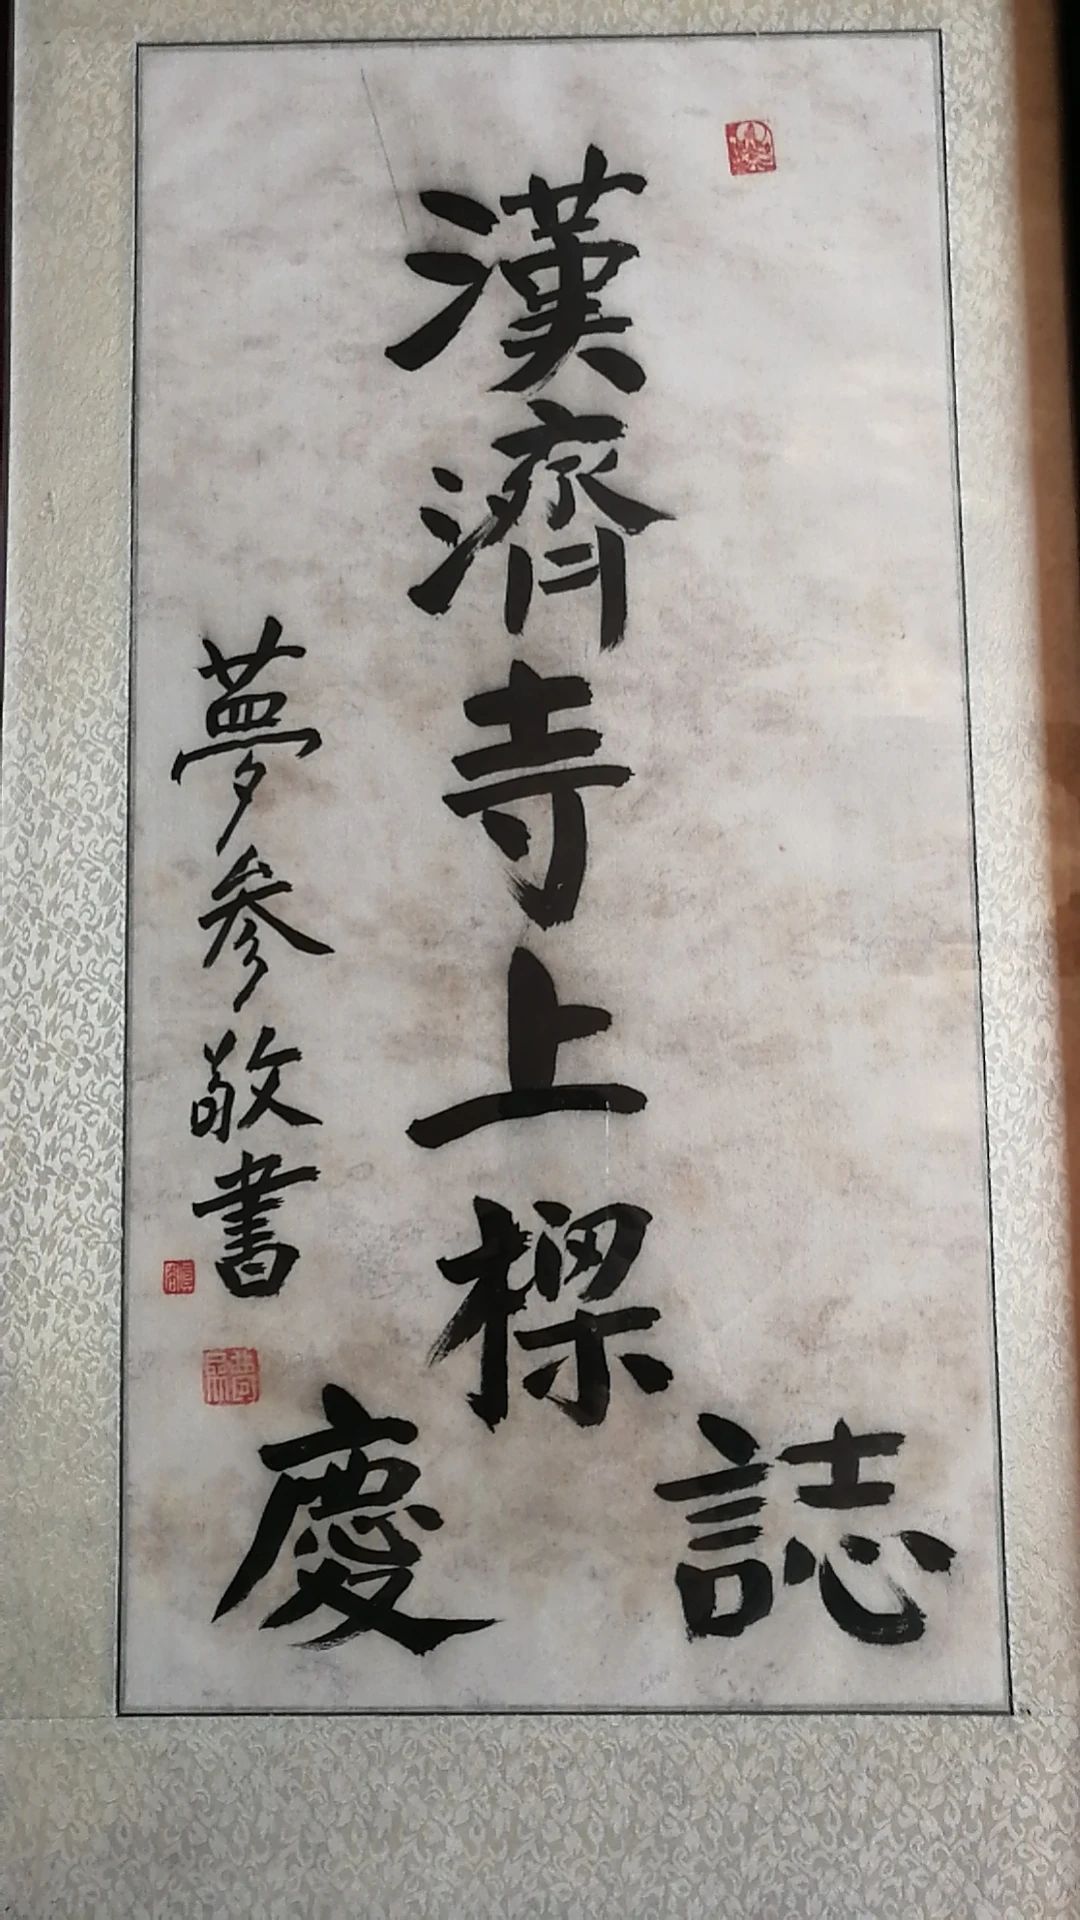 漢濟寺上樑
誌慶
夢參敬書